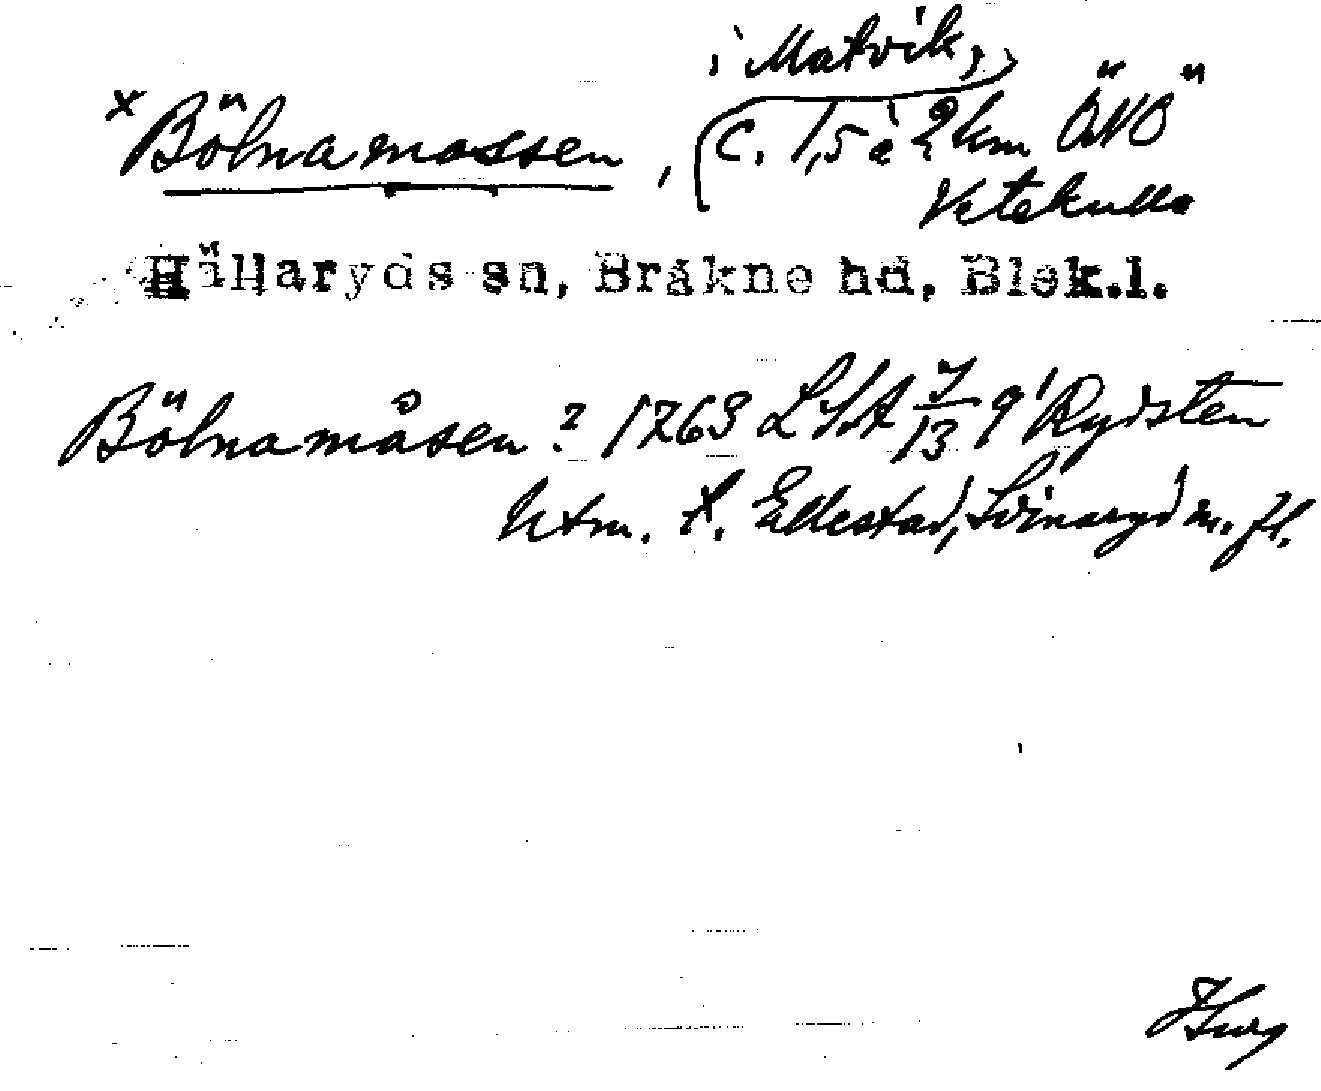 i Matvik,
×Bölnamossen, c. 1,5 à 2 km ÖNÖ
Vetekulla
Hällaryds sn, Bräkne hd, Blek.l.
Bölnamåsen? 1763 LSA 7/13 9' Rydsten
Utm. t. Ellestad, Svinaryd m. fl.